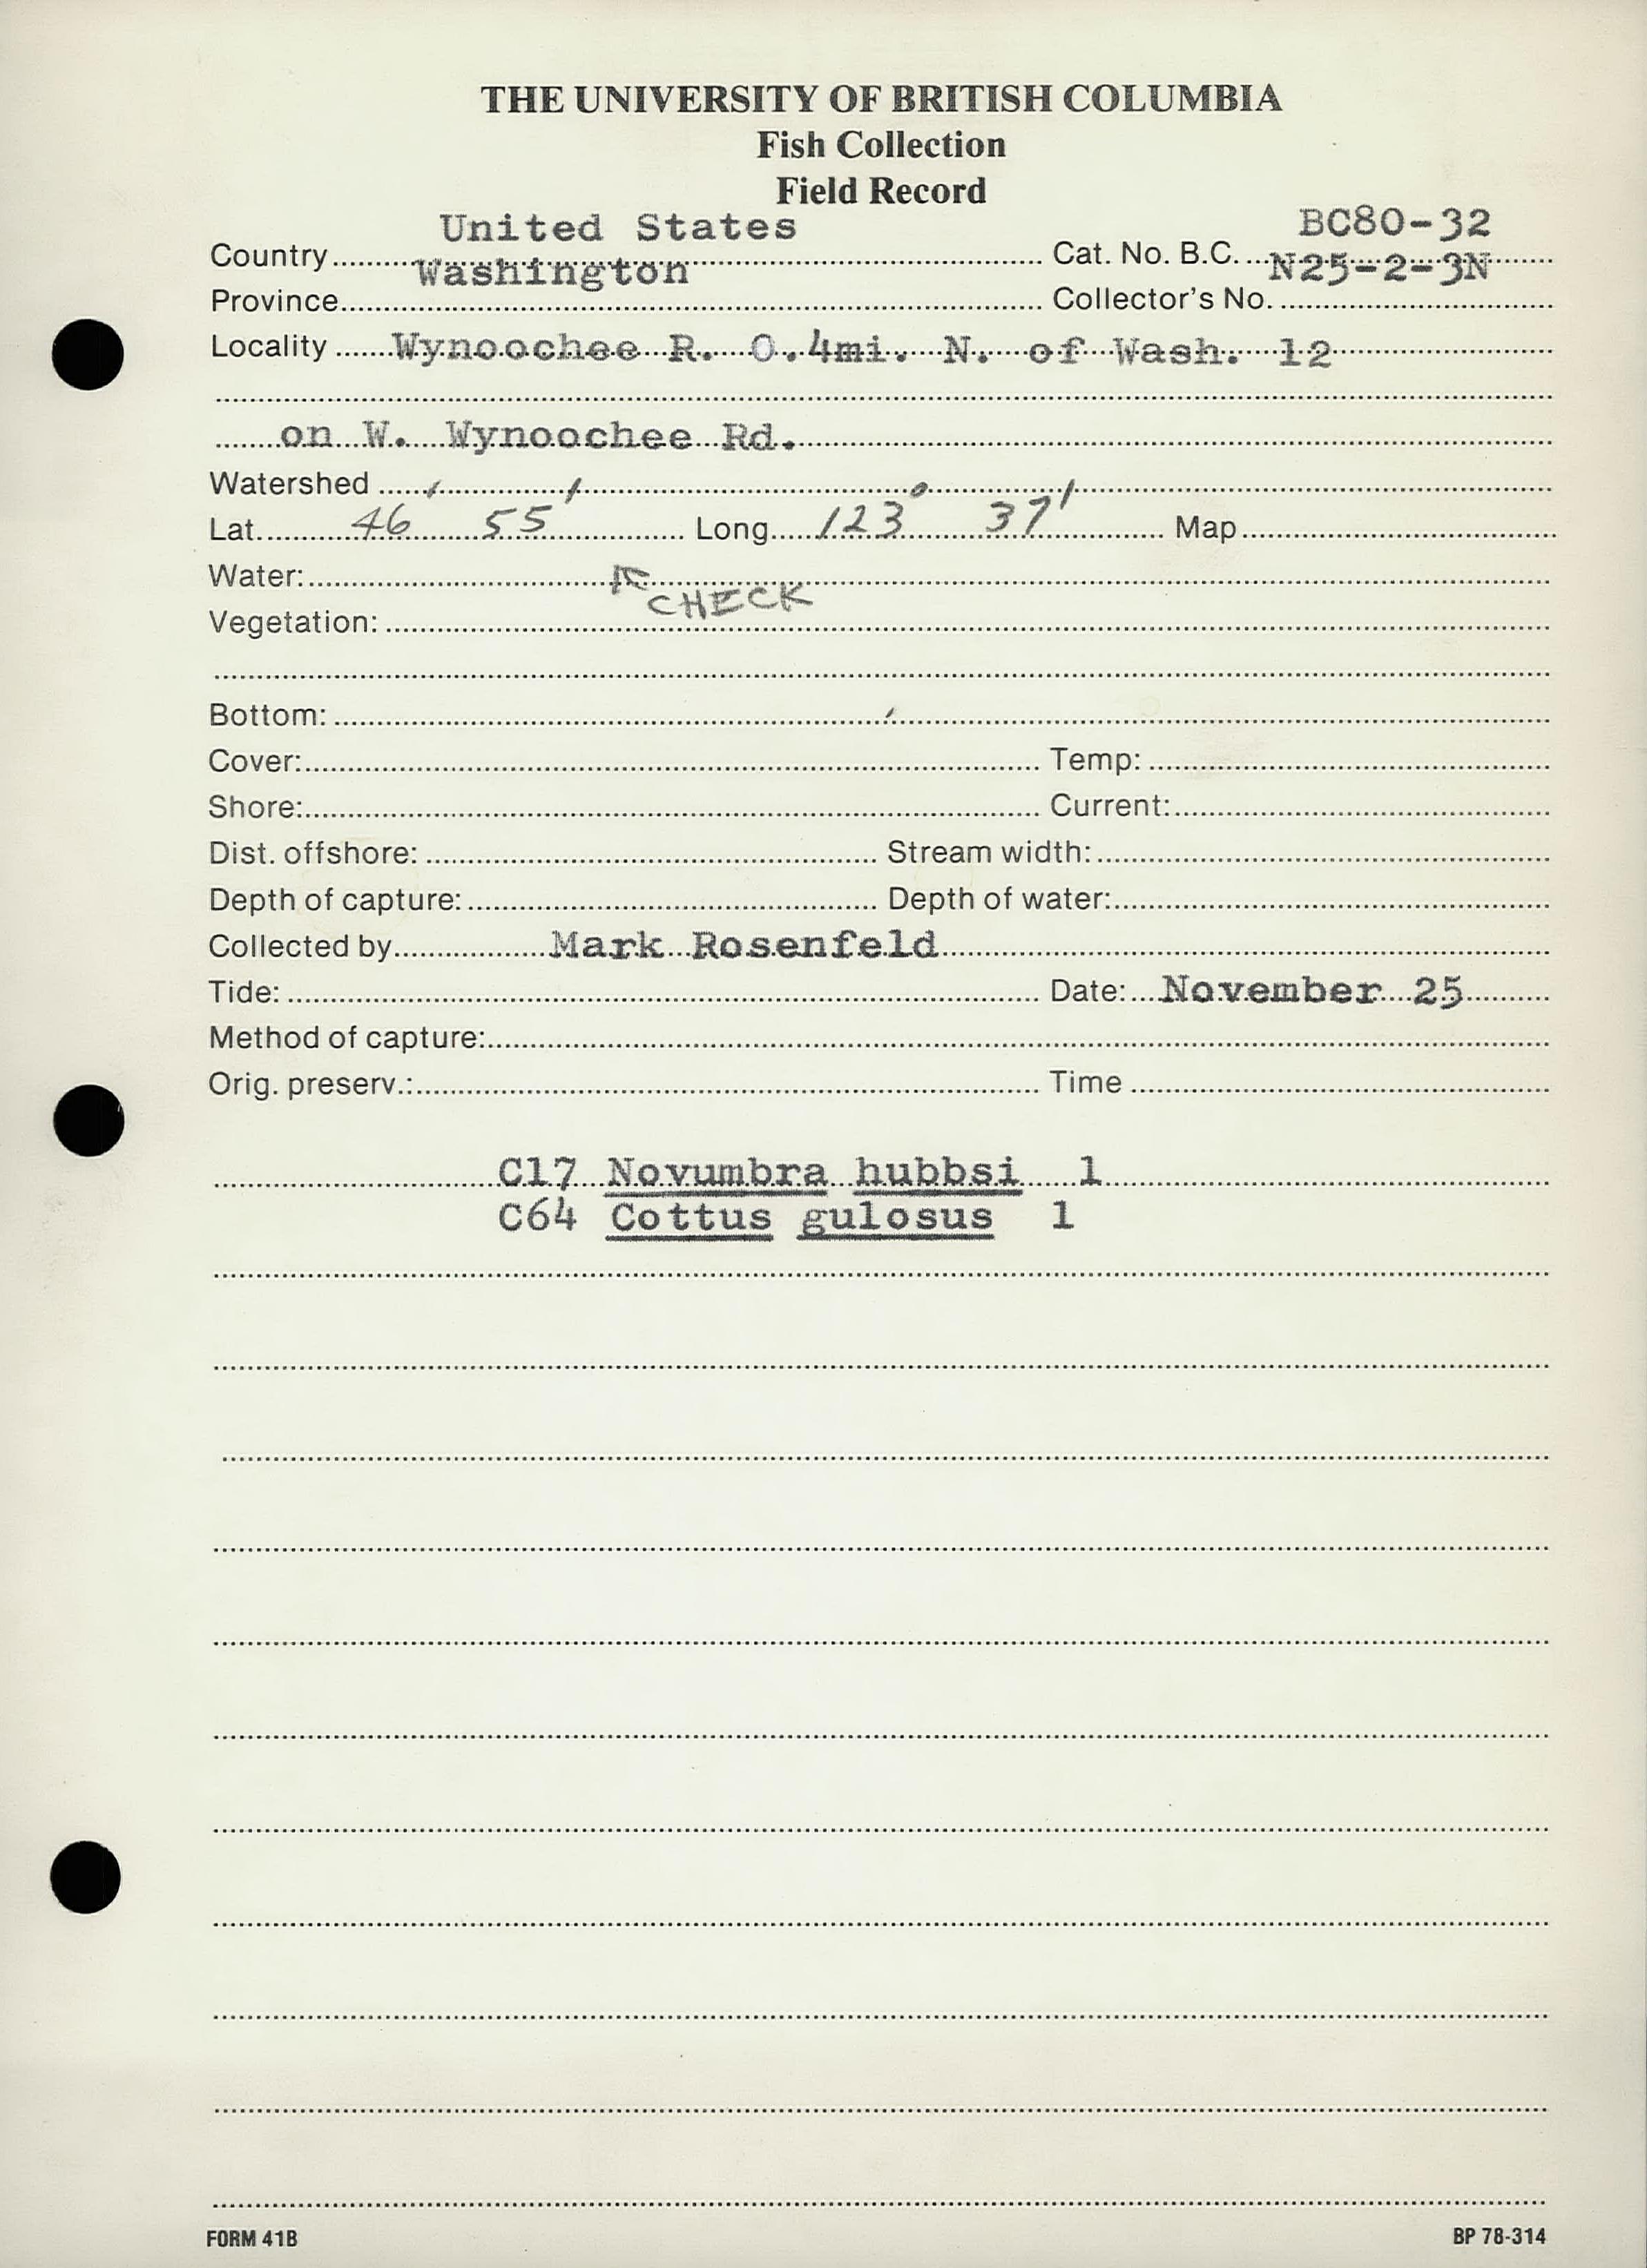 THE UNIVERSITY OF BRITISH COLUMBIA
Fish Collection
Field Record
Country United States Cat. No. B.C. BC80-32
Province Washington Collector's No. N25-2-3N
Locality Wynoochee R. 0.4mi. N. of Wash. 12
on W. Wynoochee Rd.
Watershed
Lat. 46° 55' Long. 123° 37' Map
Water:
CHECK
Vegetation:
Bottom:
Cover: Temp:
Shore: Current:
Dist. offshore: Stream width:
Depth of capture: Depth of water:
Collected by Mark Rosenfeld
Tide: Date: November 25
Method of capture:
Orig. preserv.: Time
C17 Novumbra hubbsi 1
C64 Cottus gulosus 1
FORM 41B BP 78-314